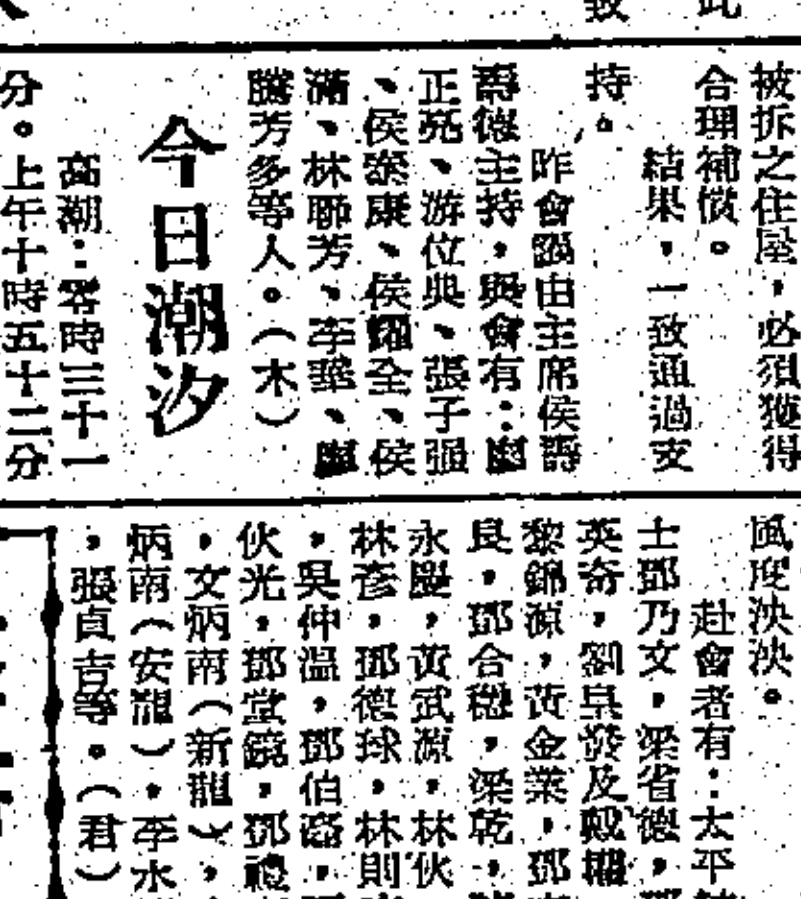 被拆之住屋，必須獲得
合理補償。
結果，一致通過支
持。
昨會議由主席侯壽
壽德主持，與會有：
正亮、游位典、張子強
、侯泰康、侯耀全、侯
滿、林聯芳、李華、
騰芳多等人。（木）
今日潮汐
高潮：零時三十一
分。上午十時五十二分
風度泱泱。
赴會者有：太平
士鄧乃文，梁省德，
英奇，劉皇發及戴權，
黎錦源，黃金業，鄧
良，鄧合穩，梁乾，
永慶，黃武源，林伙
林彥，鄧德球，林則
，吳仲溫，鄧伯
伙光，鄧堂鏡，鄧禮
，文炳南（新龍），
炳南（安龍），李水
，張貞吉等。（君）